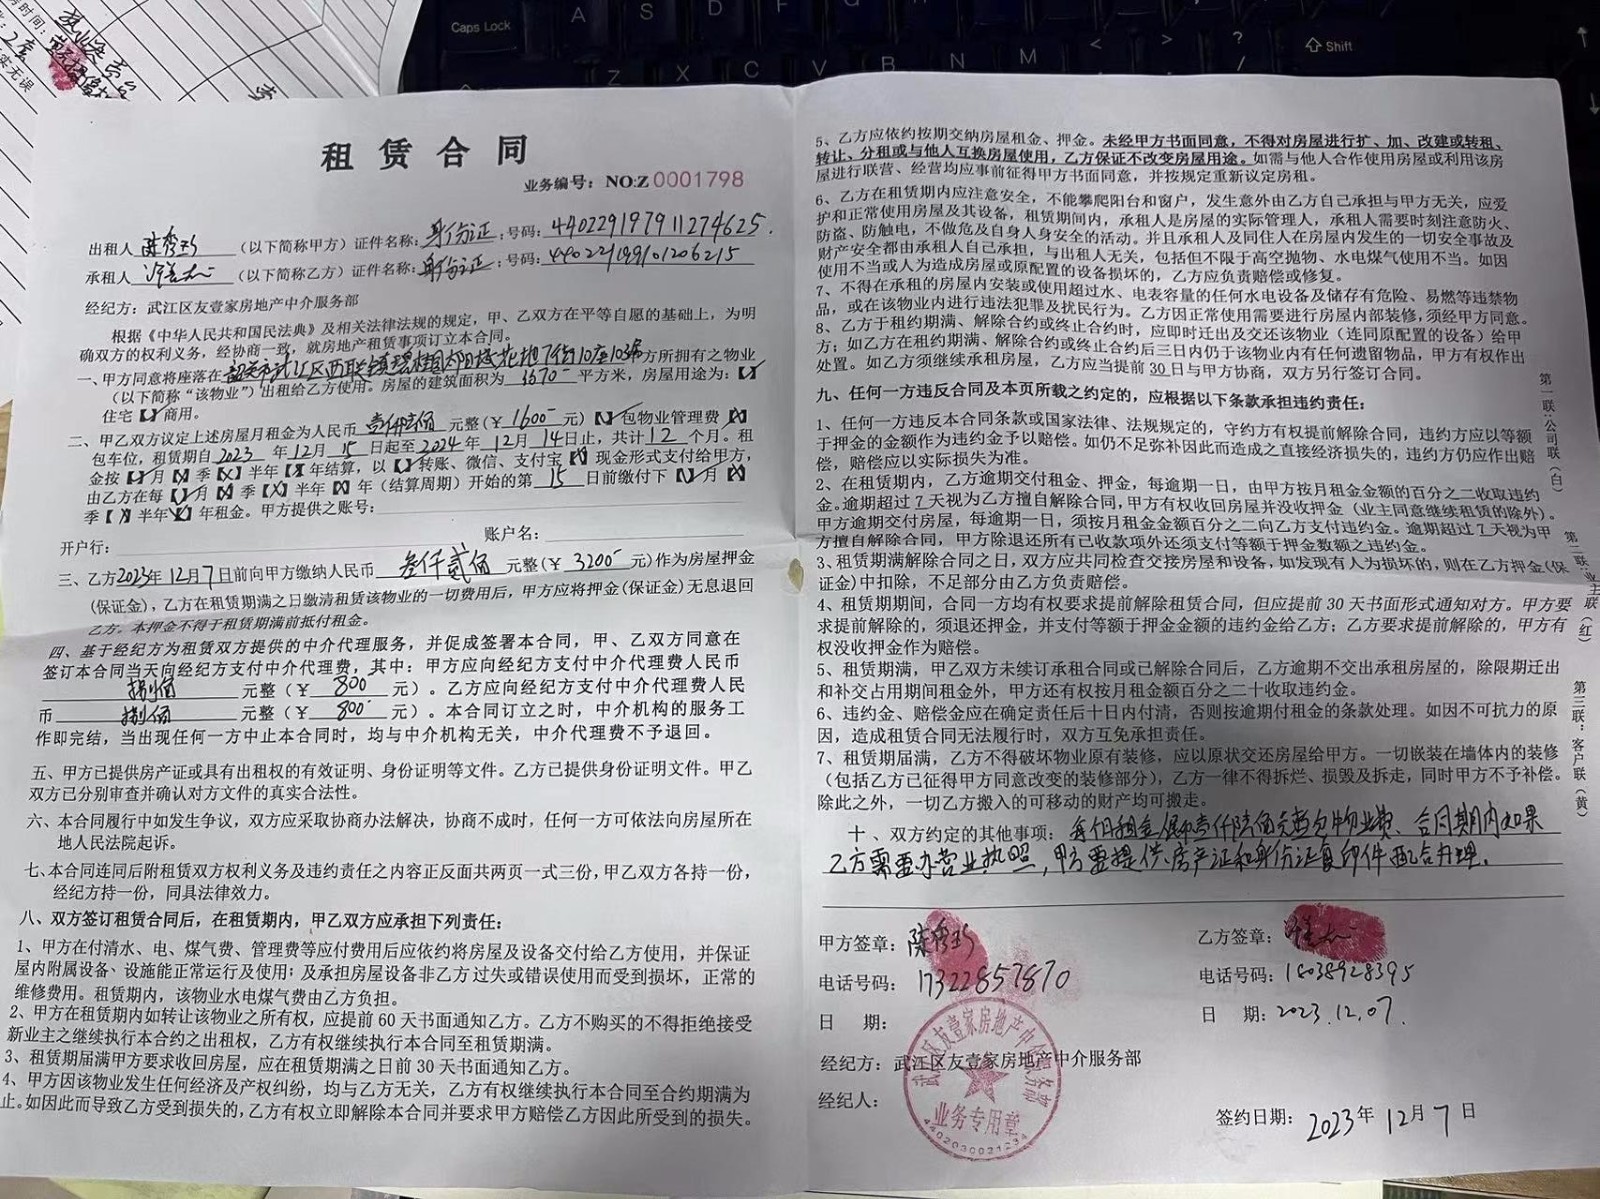 Caps Lock
A
S
D
F
G
Z
X
C
V
B
N
M
<
>
?
/
Shift
租赁合同
业务编号：NO:Z 0001798
出租人 陈秀珍 （以下简称甲方）证件名称：身份证：号码：440229197911274625.
承租人 （以下简称乙方）证件名称：身份证：号码：
经纪方：武江区友壹家房地产中介服务部
根据《中华人民共和国民法典》及相关法律法规的规定，甲、乙双方在平等自愿的基础上，为明
确双方的权利义务，经协商一致，就房屋产地产租赁事项订立本合同。
一、甲方同意将座落在 韶关市武江区西联镇碧桂园太阳城花地7街10座103号 方所拥有之物业
（以下简称“该物业”）出租给乙方使用。房屋的建筑面积为 平方米，房屋用途为：【✓】
住宅【 】商用。
二、甲乙双方议定上述房屋月租金为人民币 壹仟陆佰 元整（￥ 1600 元）【✓】包物业管理费【X】
包车位，租赁期自 2023 年 12 月 15 日起至 2024 年 12 月 14 日止，共计 12 个月。租
金按【✓】月【X】季【X】半年【X】年结算，以【✓】转账、微信、支付宝【X】现金形式支付给甲方，
由乙方在每【✓】月【X】季【X】半年【X】年（结算周期）开始的第 15 日前缴付下【✓】月【X】
季【 】半年【 】年租金。甲方提供之账号：
开户行： 账户名：
三、乙方2023年12月7日前向甲方缴纳人民币 叁仟贰佰 元整（￥ 3200 元）作为房屋押金
（保证金），乙方在租赁期满之日缴清租赁该物业的一切费用后，甲方应将押金（保证金）无息退回
乙方。本押金不得于租赁期满前抵付租金。
四、基于经纪方为租赁双方提供的中介代理服务，并促成签署本合同，甲、乙双方同意在
签订本合同当天向经纪方支付中介代理费，其中：甲方应向经纪方支付中介代理费人民币
捌佰 元整（￥ 800 元）。乙方应向经纪方支付中介代理费人民
币 捌佰 元整（￥ 800 元）。本合同订立之时，中介机构的服务工
作即完结，当出现任何一方中止本合同时，均与中介机构无关，中介代理费不予退回。
五、甲方已提供房产证或具有出租权的有效证明、身份证明等文件。乙方已提供身份证明文件。甲乙
双方已分别审查并确认对方文件的真实合法性。
六、本合同履行中如发生争议，双方应采取协商办法解决，协商不成时，任何一方可依法向房屋所在
地人民法院起诉。
七、本合同连同后附租赁双方权利义务及违约责任之内容正反面共两页一式三份，甲乙双方各持一份，
经纪方持一份，同具法律效力。
八、双方签订租赁合同后，在租赁期内，甲乙双方应承担下列责任：
1、甲方在付清水、电、煤气费、管理费等应付费用后应依约将房屋及设备交付给乙方使用，并保证
屋内附属设备、设施能正常运行及使用；及承担房屋设备非乙方过失或错误使用而受到损坏，正常的
维修费用。租赁期内，该物业水电煤气费由乙方负担。
2、甲方在租赁期内如转让该物业之所有权，应提前60天书面通知乙方。乙方不购买的不得拒绝接受
新业主之继续执行本合约之出租权，乙方有权继续执行本合同至租赁期满。
3、租赁期届满甲方要求收回房屋，应在租赁期满之日前30天书面通知乙方。
4、甲方因该物业发生任何经济及产权纠纷，均与乙方无关，乙方有权继续执行本合同至合约期满为
止。如因此而导致乙方受到损失的，乙方有权立即解除本合同并要求甲方赔偿乙方因此所受到的损失。
5、乙方应依约按期交纳房屋租金、押金。未经甲方书面同意，不得对房屋进行扩、加、改建或转租、
转让、分租或与他人互换房屋使用，乙方保证不改变房屋用途。如需与他人合作使用房屋或利用该房
屋进行联营、经营均应事前征得甲方书面同意，并按规定重新议定房租。
6、乙方在租赁期内应注意安全，不能攀爬阳台和窗户，发生意外由乙方自己承担与甲方无关，应爱
护和正常使用房屋及其设备，租赁期间内，承租人是房屋的实际管理人，承租人需要时刻注意防火、
防盗、防触电，不做危及自身人身安全的活动。并且承租人及同住人在房屋内发生的一切安全事故及
财产安全都由承租人自己承担，与出租人无关，包括但不限于高空抛物、水电煤气使用不当。如因
使用不当或人为造成房屋或原配置的设备损坏的，乙方应负责赔偿或修复。
7、不得在承租的房屋内安装或使用超过水、电表容量的任何水电设备及储存有危险、易燃等违禁物
品，或在该物业内进行违法犯罪及扰民行为。乙方因正常使用需要进行房屋内部装修，须经甲方同意。
8、乙方于租约期满、解除合约或终止合约时，应即时迁出及交还该物业（连同原配置的设备）给甲
方；如乙方在租约期满、解除合约或终止合约后三日内仍于该物业内有任何遗留物品，甲方有权作出
处置。如乙方须继续承租房屋，乙方应当提前30日与甲方协商，双方另行签订合同。
九、任何一方违反合同及本页所载之约定的，应根据以下条款承担违约责任：
1、任何一方违反本合同条款或国家法律、法规规定的，守约方有权提前解除合同，违约方应以等额
于押金的金额作为违约金予以赔偿。如仍不足弥补因此而造成之直接经济损失的，违约方仍应作出赔
偿，赔偿应以实际损失为准。
2、在租赁期内，乙方逾期交付租金、押金，每逾期一日，由甲方按月租金金额的百分之二收取违约
金。逾期超过7天视为乙方擅自解除合同，甲方有权收回房屋并没收押金（业主同意继续租赁的除外）。
甲方逾期交付房屋，每逾期一日，须按月租金金额百分之二向乙方支付违约金。逾期超过7天视为甲
方擅自解除合同，甲方除退还所有已收款项外还须支付等额于押金数额之违约金。
3、租赁期满解除合同之日，双方应共同检查交接房屋和设备，如发现有人为损坏的，则在乙方押金（保
证金）中扣除，不足部分由乙方负责赔偿。
4、租赁期期间，合同一方均有权要求提前解除租赁合同，但应提前30天书面形式通知对方。甲方要
求提前解除的，须退还押金，并支付等额于押金金额的违约金给乙方；乙方要求提前解除的，甲方有
权没收押金作为赔偿。
5、租赁期满，甲乙双方未续订承租合同或已解除合同后，乙方逾期不交出承租房屋的，除限期迁出
和补交占用期间租金外，甲方还有权按月租金额百分之二十收取违约金。
6、违约金、赔偿金应在确定责任后十日内付清，否则按逾期付租金的条款处理。如因不可抗力的原
因，造成租赁合同无法履行时，双方互免承担责任。
7、租赁期届满，乙方不得破坏物业原有装修，应以原状交还房屋给甲方。一切嵌装在墙体内的装修
（包括乙方已征得甲方同意改变的装修部分），乙方一律不得拆烂、损毁及拆走，同时甲方不予补偿。
除此之外，一切乙方搬入的可移动的财产均可搬走。
十、双方约定的其他事项：每个月租金 壹仟陆佰元整包物业费、合同期内如果
乙方需要办营业执照，甲方需提供房产证和身份证复印件配合办理。
甲方签章：陈秀珍
电话号码：17322857870
日 期：
经纪方：武江区友壹家房地产中介服务部
经纪人：
乙方签章：
电话号码：18038928395
日 期：2023.12.07.
签约日期：2023年12月7日
武江区友壹家房地产中介服务部
业务专用章
第一联：公司联（白）
第二联：业主联（红）
第三联：客户联（黄）